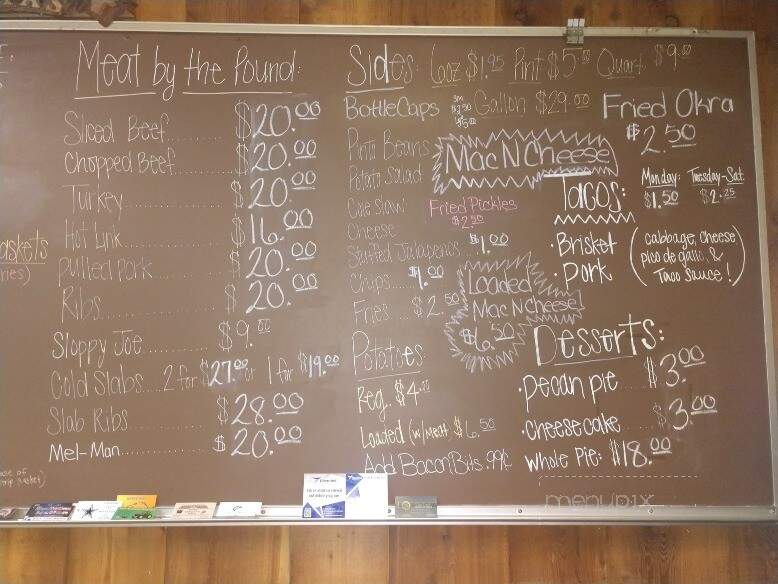 Meat by the Pound:
Sliced Beef........ $20.00
Chopped Beef....... $20.00
Turkey............. $20.00
Hot Link........... $16.00
Pulled Pork........ $20.00
Ribs............... $20.00
Sloppy Joe......... $9.00
Cold Slabs...2 for $27.00 or 1 for $19.00
Slab Ribs.......... $28.00
Mel-Man............ $20.00
Sides: 6oz $1.95 Pint $5.00 Quart $9.00
Gallon $29.00
Bottle Caps sm $3.50
Fried Okra
$2.50
Pinto Beans
Potato Salad
Cole Slaw
Cheese
Stuffed Jalapenos... $1.00
Chips..... $1.00
Fries.... $2.50
Mac N Cheese
Fried Pickles
$2.50
Loaded
Mac N Cheese
$6.50
Potatoes:
Reg. $4.00
Loaded (w/meat) $6.50
Add Bacon Bits .99¢
Tacos:
Monday: $1.50
Tuesday-Sat. $2.25
• Brisket
• Pork
(cabbage, cheese
pico de gallo, &
Taco Sauce!)
Desserts:
• pecan pie..... $3.00
• cheesecake.... $3.00
Whole Pie: $18.00
menupix